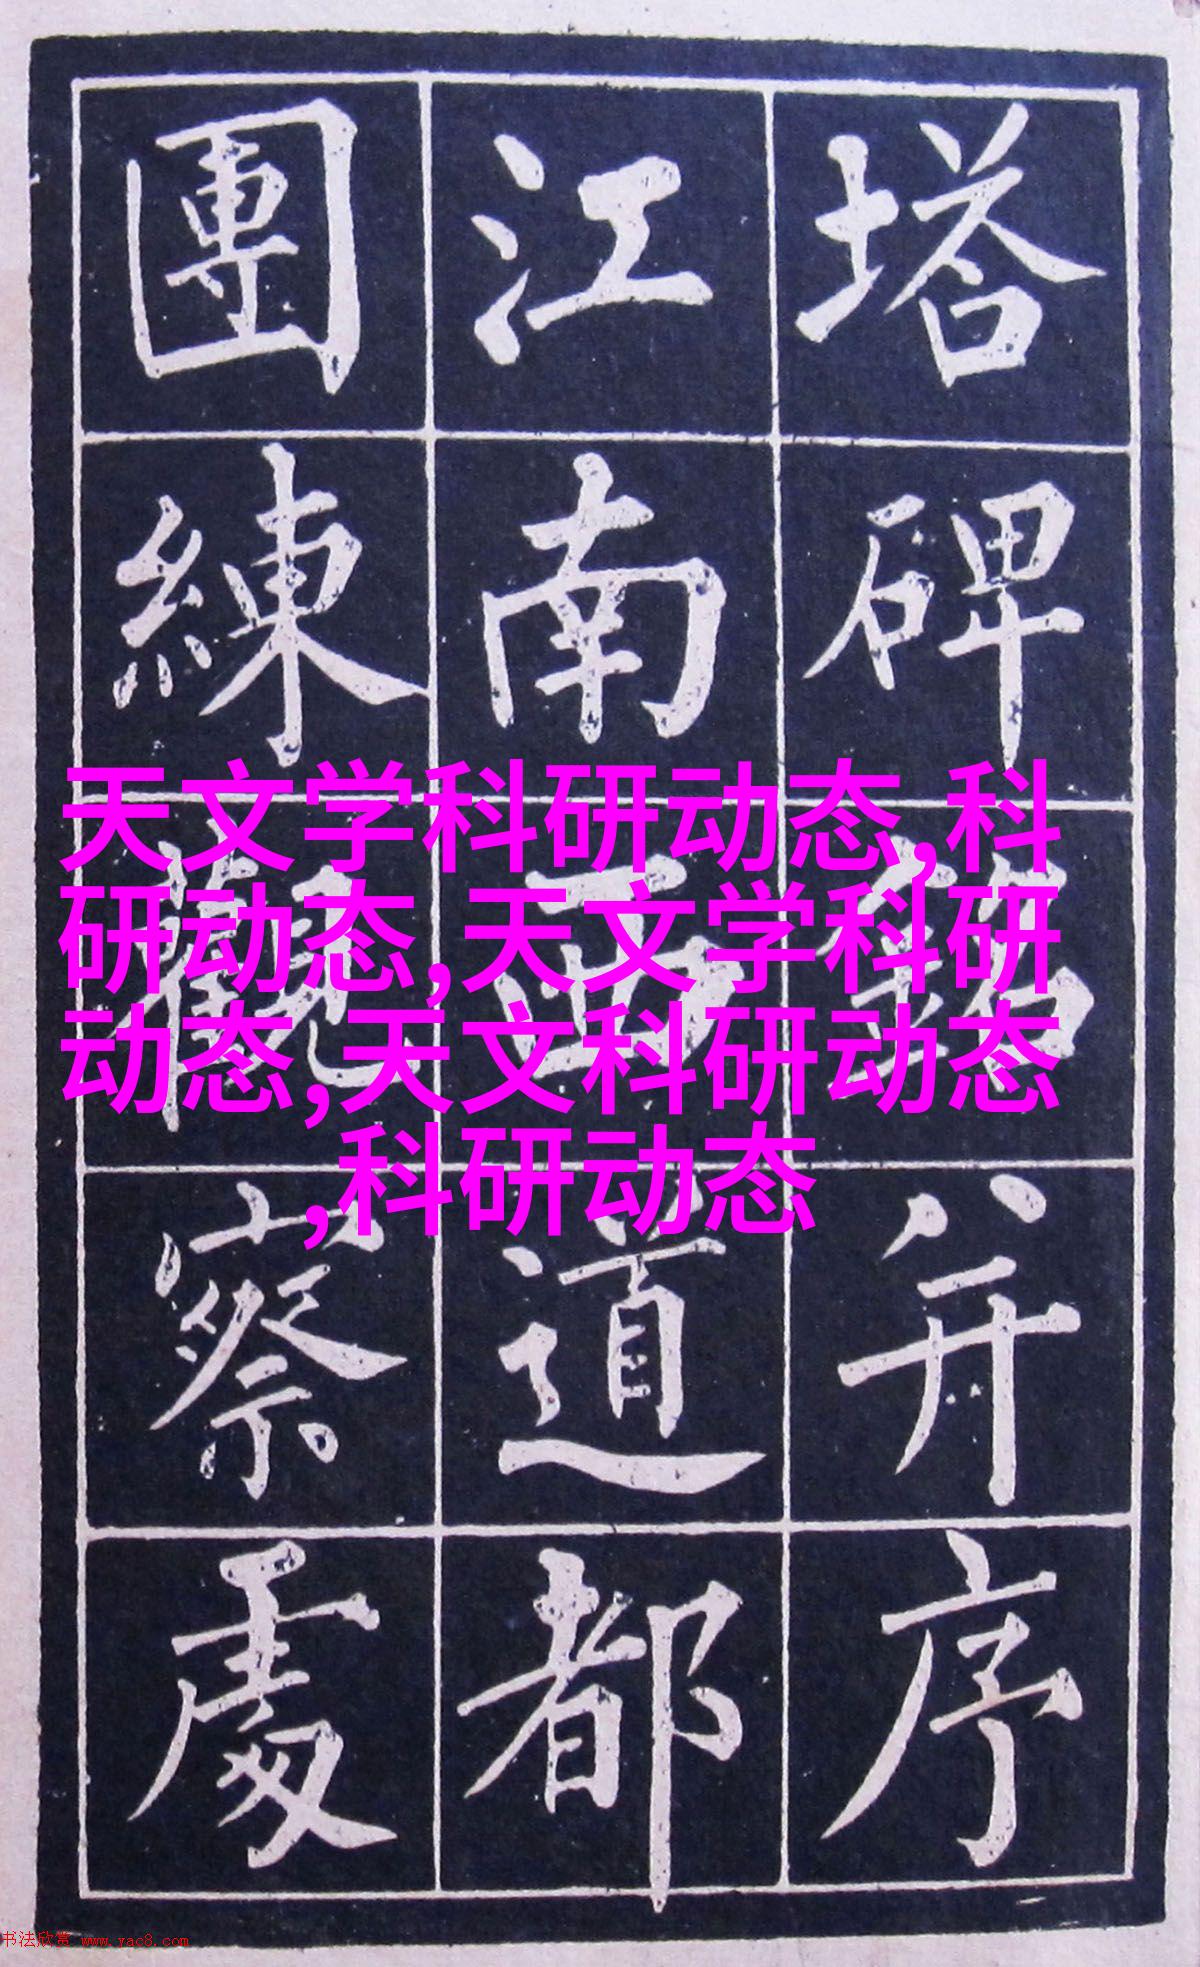 塔碑銘并序
江南西道都
團練觀察處
天文学科研动态,科
研动态,天文学科研
动态,天文科研动态
,科研动态
书法欣赏 www.yac8.com